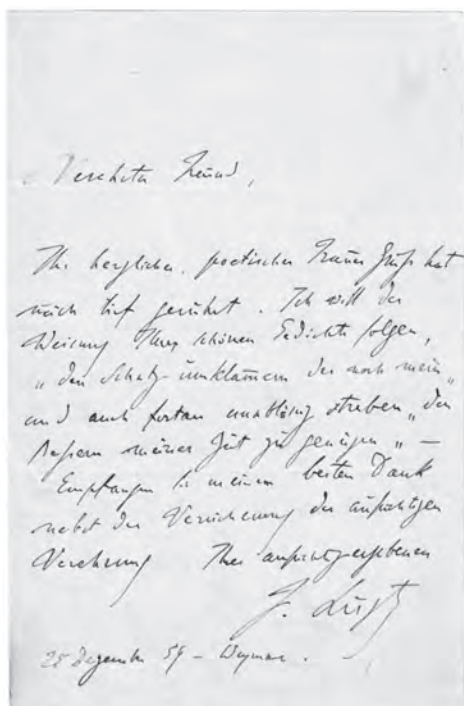 Verehrter Freund,
Ihr herzlicher, poetischer Trauer Gruß hat
mich tief gerührt. Ich will der
Weisung Ihres schönen Gedichts folgen,
„den Schatz umklammern der noch mein"
und auch fortan unablässig streben „den
Besseren meiner Zeit zu genügen" –
Empfangen Sie meinen besten Dank
nebst der Versicherung der aufrichtigen
Verehrung Ihres aufrichtig ergebenen
F. Liszt
25 Dezember 59 – Weymar.